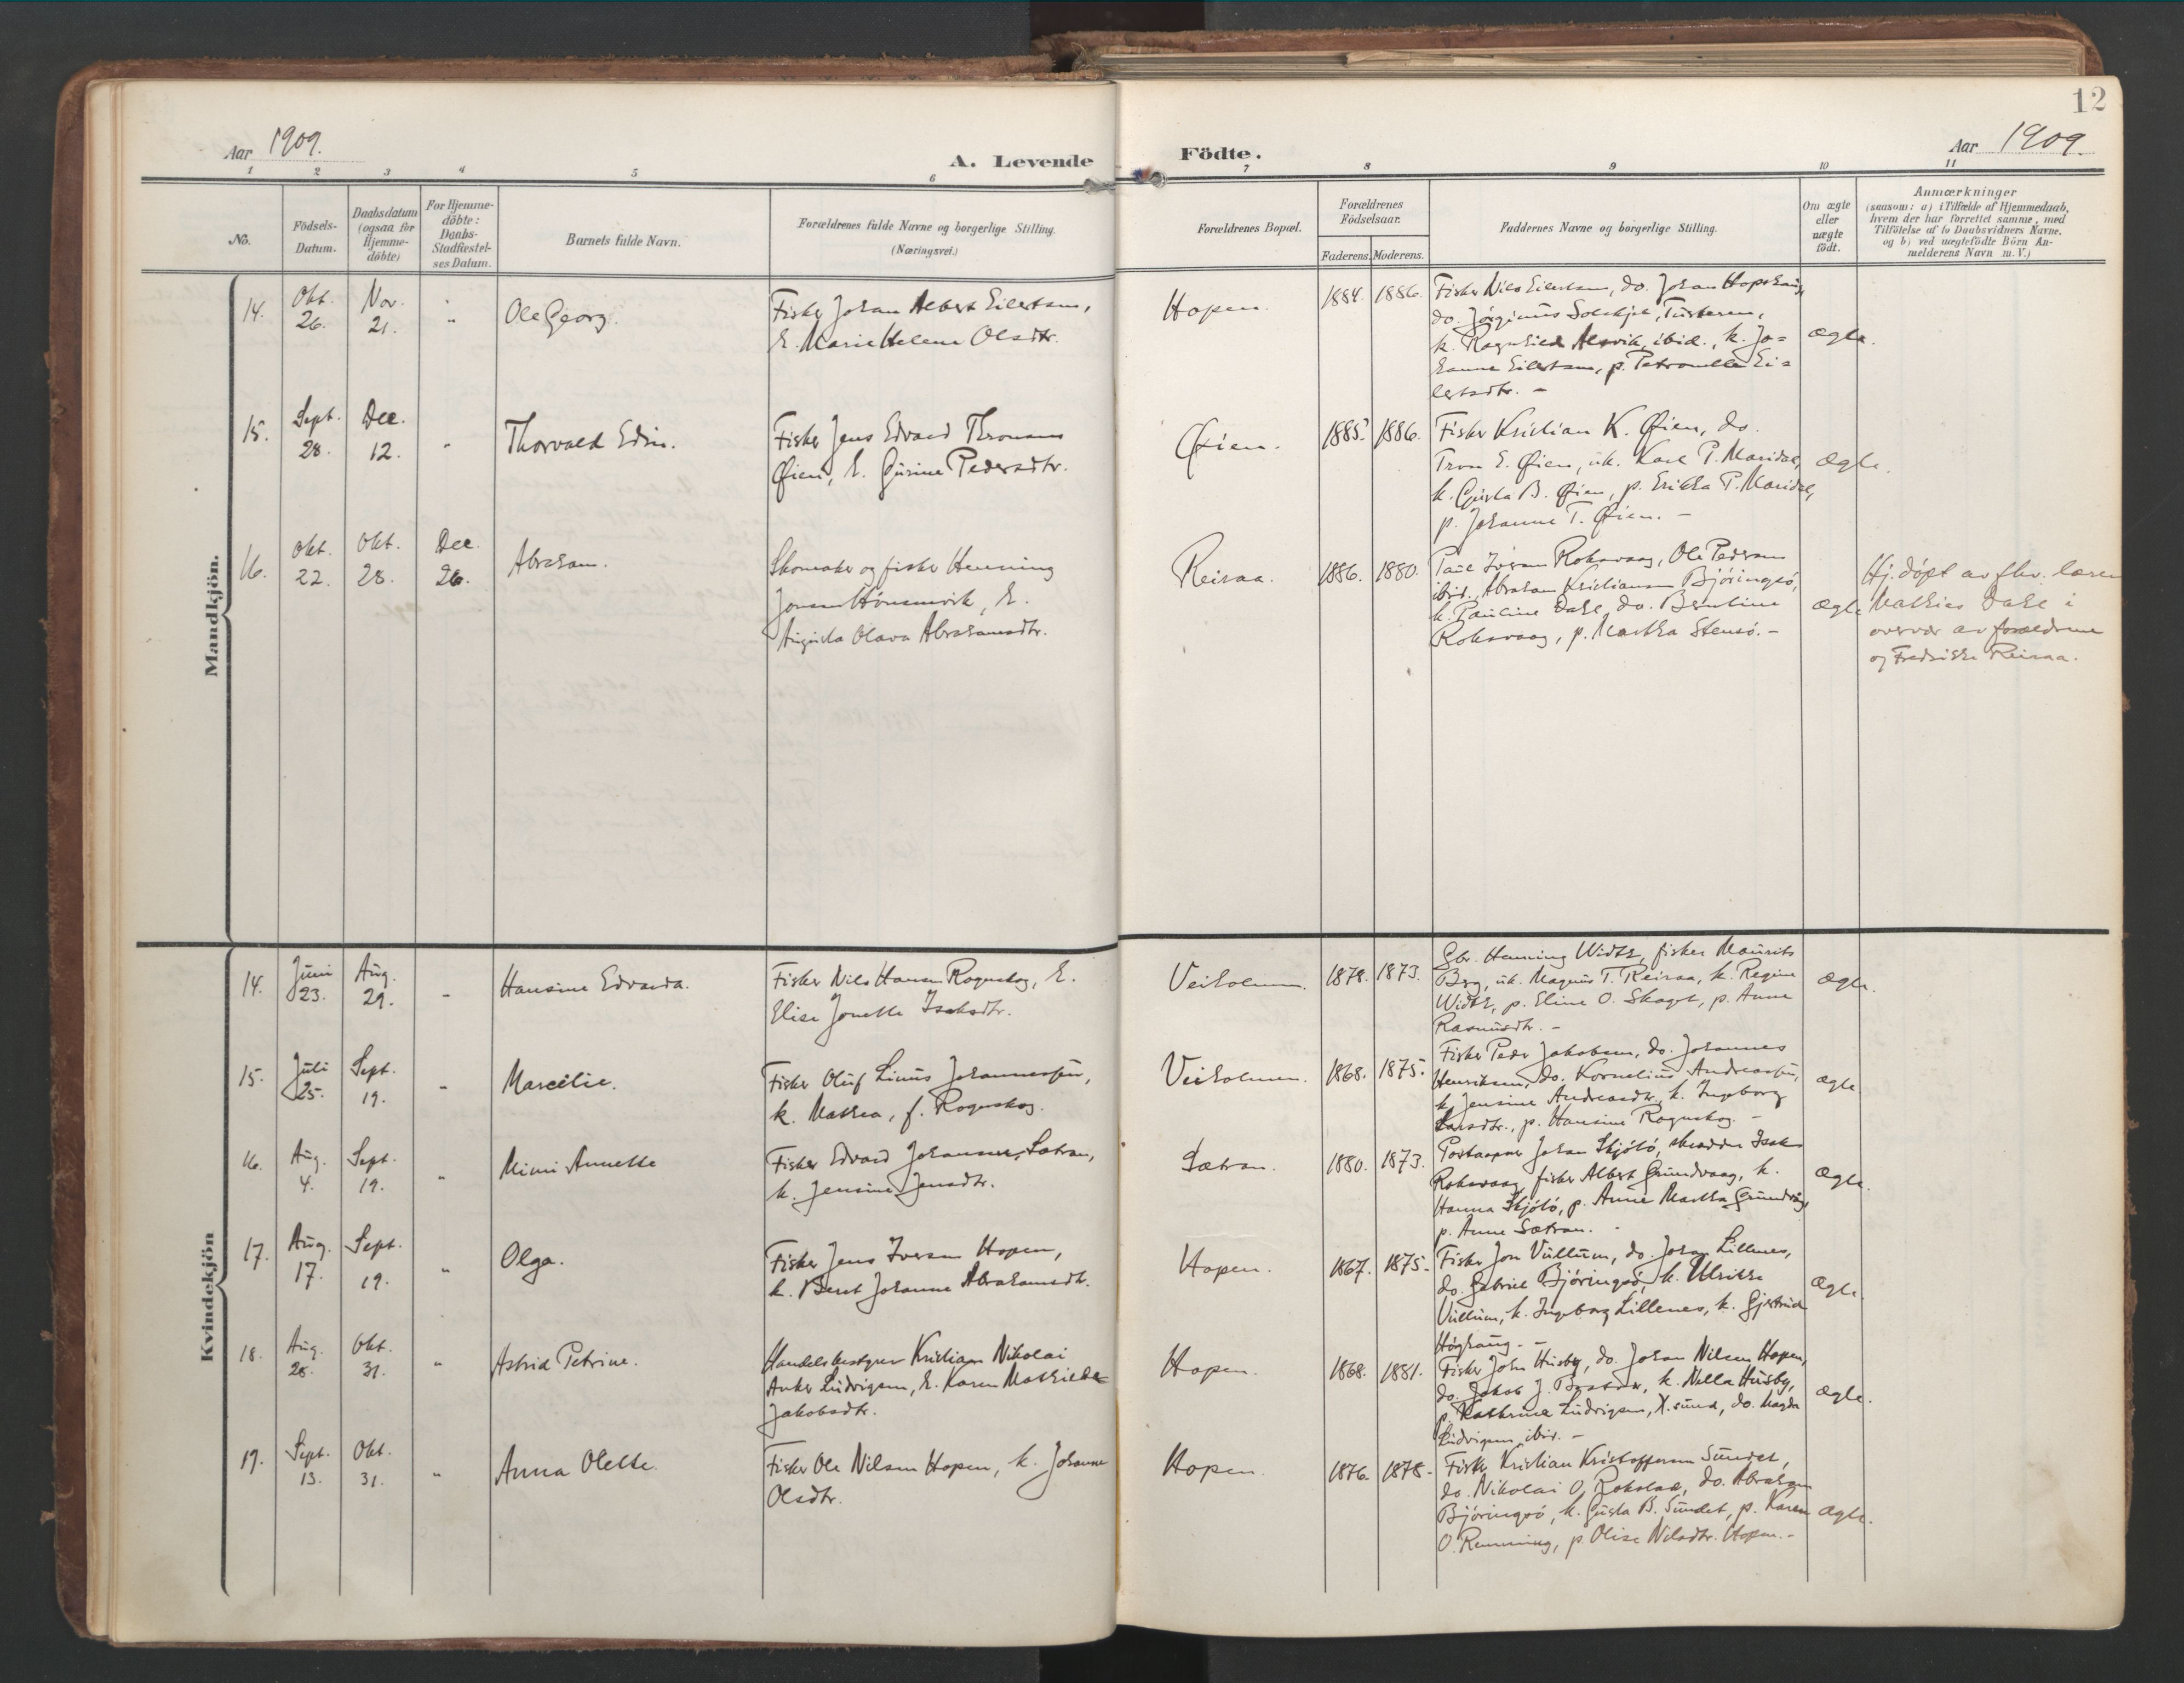 12
Aar 1909.
A. Levende
Födte.
Aar 1909.
1 2 3 4 5 6 7 8 9 10 11
No.
Födsels-
Datum.
Daabsdatum
(ogsaa for
Hjemme-
döbte)
For Hjemme-
döbte:
Daabs-
Stadfæstel-
ses Datum.
Barnets fulde Navn.
Forældrenes fulde Navne og borgerlige Stilling.
(Næringsvei.)
Forældrenes Bopæl.
Forældrenes
Födselsaar.
Faderens. Moderens.
Faddernes Navne og borgerlige Stilling.
Om ægte
eller
uægte
födt.
Anmærkninger
(saasom: a) i Tilfælde af Hjemmedaab,
hvem der har forrettet samme, med
Tilföielse af to Daabsvidners Navne.
og b) ved uægtefödte Börn An-
melderens Navn m. V.)
Mandkjön.
14.
Okt.
26.
Nov.
21.
Ole Georg.
Fisker Johan Albert Eilertsen,
h. Marie Helene Olsdtr.
Hopen.
1884. 1886.
Fisker Nils Eilertsen, do. Johan Hopshaug,
do. Jørginus Solskjel, Tusteren,
k. Ragnhild Alsvik, ibid., k. Jo=
hanne Eilertsen, p. Petronelle Ei=
lertsdtr. –
ægte.
15.
Sept.
28.
Dec.
12.
Thorvald Edin.
Fisker Jens Edvard Thronsen
Øien, h. Gurine Pedersdtr.
Øien.
1885. 1886.
Fisker Kristian K. Øien, do.
Tron E. Øien, uk. Karl P. Maridal,
k. Gusta B. Øien, p. Erikka P. Maridal,
p. Johanne T. Øien. –
ægte.
16.
Okt.
22.
Okt.
28.
Dec.
26.
Abraham.
Skomaker og fisker Henning
Jonsen Hönsvik, h.
Augusta Olava Abrahamsdtr.
Reiraa.
1886. 1880.
Paul Iversen Roksvaag, Ole Pedersen
ibid., Abraham Kristiansen Björingsö,
k. Pauline Dahl, do. Berntine
Roksvaag, p. Martha Stensö. –
ægte
Hj.döpt av fhv. lærer
Mathias Dahl i
overvær av forældrene
og Fredrikke Reiraa.
Kvindekjön
14.
Juni
23.
Aug.
29.
Hansine Edvarda.
Fisker Nils Hansen Ragnskog, h.
Elise Jonette Isaksdtr.
Veiholmen.
1878. 1873.
Gbr. Henning Width, fisker Maurits
Berg, uk. Magnus T. Reiraa, k. Regine
Width, p. Eline O. Skaget, p. Anne
Rasmusdtr. –
ægte.
15.
Juli
25.
Sept.
19.
Marcelie.
Fisker Oluf Linus Johannessen,
k. Mathea, f. Rognskog.
Veiholmen.
1868. 1875.
Fisker Peder Jakobsen, do. Johannes
Henriksen, do. Kornelius Andreassen,
k. Jensine Andreasdtr., k. Ingeborg
Larsdtr., p. Hansine Rognskog –
ægte
16.
Aug.
4.
Sept.
19.
Mimi Annette
Fisker Edvard Johansen Sætran,
k. Jensine Jensdtr.
Sætran.
1880. 1873.
Postaapner Johan Skjölö, skrædder Isak
Roksvaag, fisker Albert Grundvaag, k.
Hanna Skjölö, p. Anne Martha Grundvåg,
p. Anne Sætran.
ægte.
17.
Aug.
17.
Sept.
19.
Olga.
Fisker Jens Iversen Hopen,
k. Beret Johanne Abrahamsdtr.
Hopen.
1867. 1875.
Fisker Jon Vullum, do. Johan Lillenes,
do. Gabriel Björingsö, k. Ulrikke
Vullum, k. Ingeborg Lillenes, k. Gjertrud
Höghaug. –
ægte.
18.
Aug.
28.
Okt.
31.
Astrid Petrine.
Handelsbestyrer Kristian Nikolai
Anker Ludvigsen, h. Karen Mathilde
Jakobsdtr.
Hopen.
1868. 1881.
Fisker John Husby, do. Johan Nilsen Hopen,
do. Jakob J. k. Nella Husby,
p. Kathrine Ludvigsen, X.sund, do. Magda
Ludvigsen, ibid. –
ægte.
19.
Sept.
13.
Okt.
31.
Anna Olette.
Fisker Ole Nilsen Hopen, k. Johanne
Olsdtr.
Hopen.
1876. 1878.
Fisker Kristian Kristoffersen Sundet,
do. Nikolai O. do. Abraham
Björingsö, k. Gusta B. Sundet, p. Karen
O. Renning, p. Olise Nilsdtr. Hopen. –
ægte.